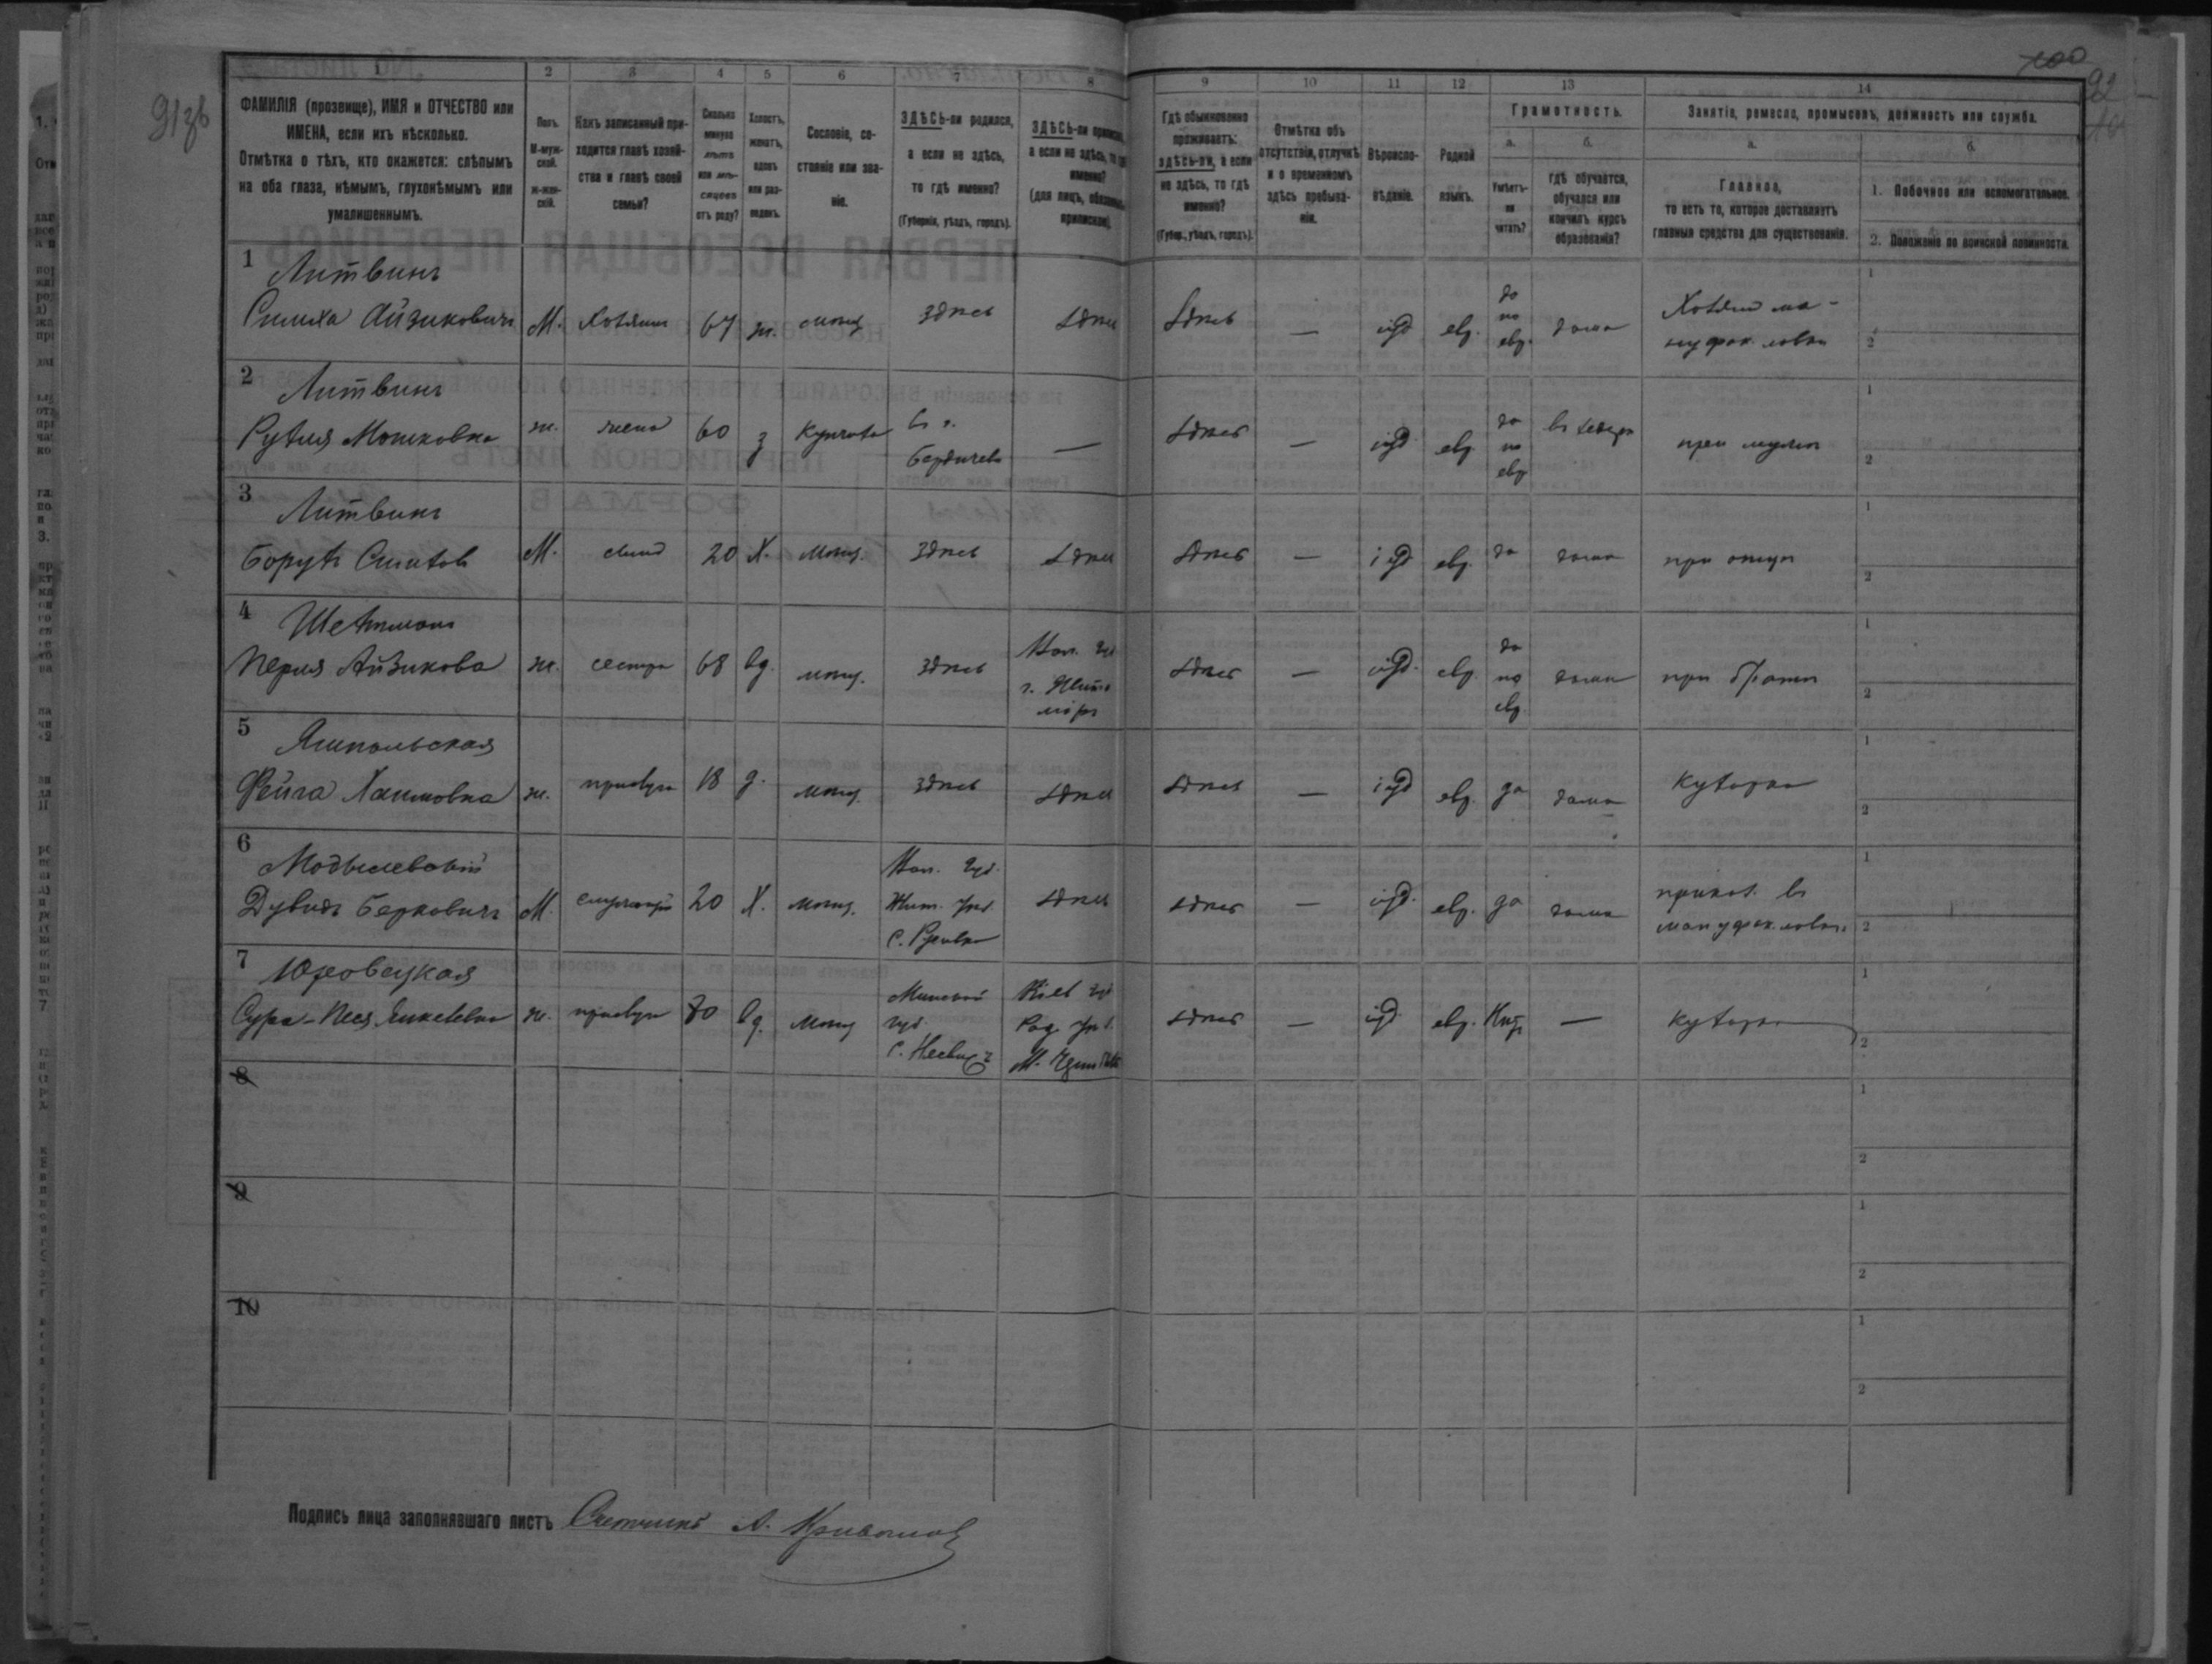 91 зв
100
92
1
2
3
4
5
6
7
8
9
10
11
12
13
14
ФАМИЛІЯ (прозвище), ИМЯ и ОТЧЕСТВО или
ИМЕНА, если ихъ нѣсколько.
Отмѣтка о тѣхъ, кто окажется: слѣпымъ
на оба глаза, нѣмымъ, глухонѣмымъ или
умалишеннымъ.
Полъ.
М-муж-
ской.
ж-жен-
скій.
Какъ записанный при-
ходится главѣ хозяй-
ства и главѣ своей
семьи?
Сколько
минуло
лѣтъ
или мѣ-
сяцевъ
отъ роду?
Холостъ,
женатъ,
вдовъ
или раз-
веденъ.
Сословіе, со-
стояніе или зва-
ніе.
ЗДѢСЬ-ли родился,
а если не здѣсь,
то гдѣ именно?
(Губернія, уѣздъ, городъ).
ЗДѢСЬ-ли
а если не здѣсь, то
именно?
(для лицъ,
припискою).
Гдѣ обыкновенно
проживаетъ:
здѣсь-ли, а если
не здѣсь, то гдѣ
именно?
(Губер., уѣздъ, городъ).
Отмѣтка объ
отсутствіи, отлучкѣ
и о временномъ
здѣсь пребыва-
ніи.
Вѣроиспо-
вѣданіе.
Родной
языкъ.
Грамотность.
а.
Умѣетъ-
ли
читать?
б.
гдѣ обучается,
обучался или
кончилъ курсъ
образованія?
Занятіе, ремесло, промыселъ, должность или служба.
а.
Главное,
то есть то, которое доставляетъ
главныя средства для существованія.
б.
1. Побочное или вспомогательное.
2. Положеніе по воинской повинности.
1
Литвинъ
Симха Айзиковичъ
М.
Хозяинъ
67
ж.
мещ
здѣсь
здѣсь
здѣсь
—
іуд
евр.
да
по
евр.
дома
Хозяин ма-
нуфак. лавки
1
2
2
Литвинъ
Рухля Мошковна
ж.
жена
60
з
Купчиха
въ г.
Бердичевѣ
—
здѣсь
—
іуд
евр
да
по
евр
въ хедерѣ
при мужѣ
1
2
3
Литвинъ
Борухъ Симхов
М.
сынъ
20
Х.
мещ.
здѣсь
здѣсь
здѣсь
—
іуд
евр.
да
дома
при отцѣ
1
2
4
Перля Айзикова
ж.
сестра
68
вд.
мещ.
здѣсь
Вол. губ
г. Жито
міръ
здѣсь
—
іуд.
евр.
да
по
евр.
дома
при братѣ
1
2
5
Ямпольская
Фейга Хаимовна
ж.
прислуга
18
д.
мещ.
здѣсь
здѣсь
здѣсь
—
іуд
евр.
да
дома
кухарка
1
2
6
Дувидъ Берковичъ
М.
служащій
20
Х.
мещ.
Вол. губ.
Жит. уѣз.
здѣсь
здѣсь
—
іуд.
евр.
да
дома
приказ. въ
мануфак. лавкѣ
1
2
7
Юровецкая
Сура-Песя Янкелевна
ж.
прислуга
70
вд.
мещ
Минской
губ.
Кіев губ
Рад. уѣз.
здѣсь
—
іуд.
евр.
Нѣт
—
кухарка
1
2
8
1
2
9
1
2
10
1
2
Подпись лица заполнявшаго листъ Счетчикъ А.